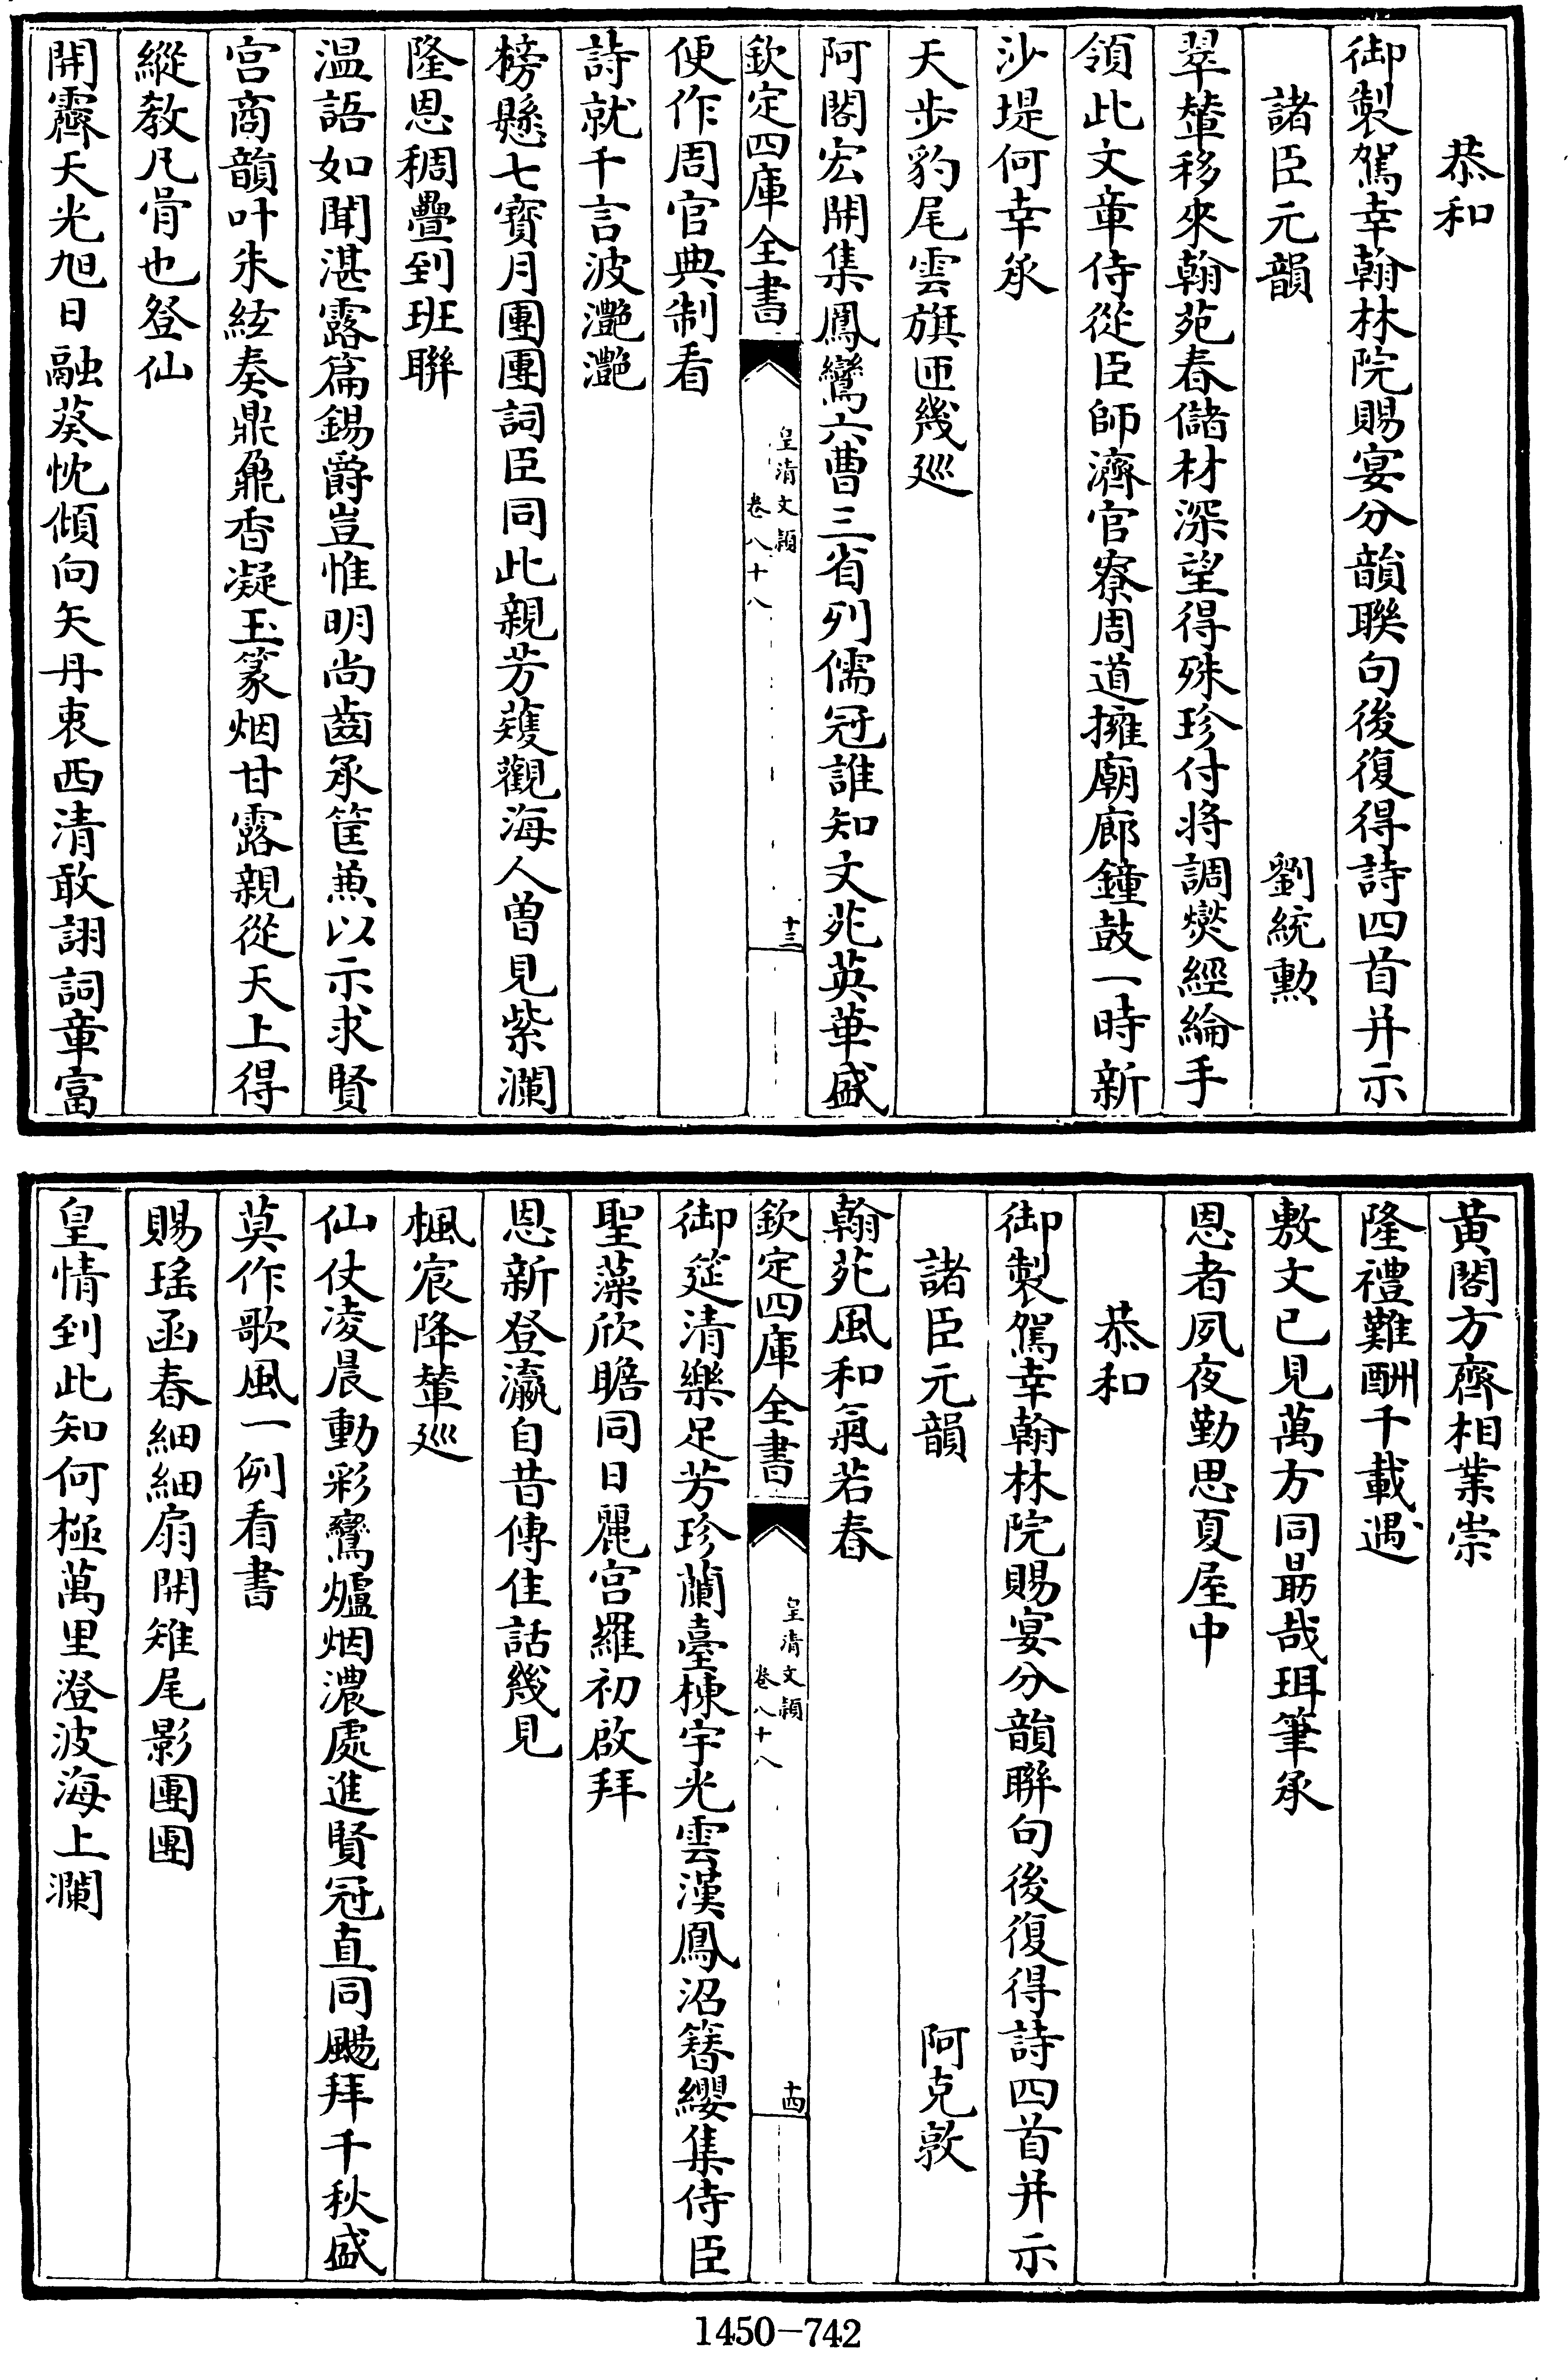 恭和
御製駕幸翰林院賜宴分韻聯句後復得詩四首并示
諸臣元韻 劉統勳
翠輦移來翰苑春儲材深望得殊珍付將調爕經綸手
領此文章侍從臣師濟官寮周道擁廟廊鐘鼓一時新
沙堤何幸承
天步豹尾雲旗匝幾廵
阿閣宏開集鳳鸞六曹三省列儒冠誰知文苑英華盛
欽定四庫全書
皇清文頴
卷八十八
十三
便作周官典制看
詩就千言波灔灔
榜懸七寳月團團詞臣同此親芳蕿觀海人曽見紫瀾
隆恩稠疊到班聨
温語如聞湛露篇錫爵豈惟明尚齒承筐兼以示求賢
宫商韻叶朱絃奏鼎鼐香凝玉篆烟甘露親從天上得
縱教凡骨也登仙
開霽天光旭日融葵忱傾向矢丹衷西清敢詡詞章富
黄閣方齊相業崇
隆禮難酬千載遇
敷文已見萬方同勗哉珥筆承
恩者夙夜勤思夏屋中
恭和
御製駕幸翰林院賜宴分韻聨句後復得詩四首并示
諸臣元韻 阿克敦
翰苑風和氣若春
欽定四庫全書
皇清文頴
卷八十八
十四
御筵清樂足芳珍蘭臺棟宇光雲漢鳳沼簪纓集侍臣
聖藻欣瞻同日麗宫羅初啟拜
恩新登瀛自昔傳佳話幾見
楓宸降輦廵
仙仗凌晨動彩鸞爐烟濃處進賢冠直同颺拜千秋盛
莫作歌風一例看書
賜瑤函春細細扇開雉尾影團團
皇情到此知何極萬里澄波海上瀾
1450-742